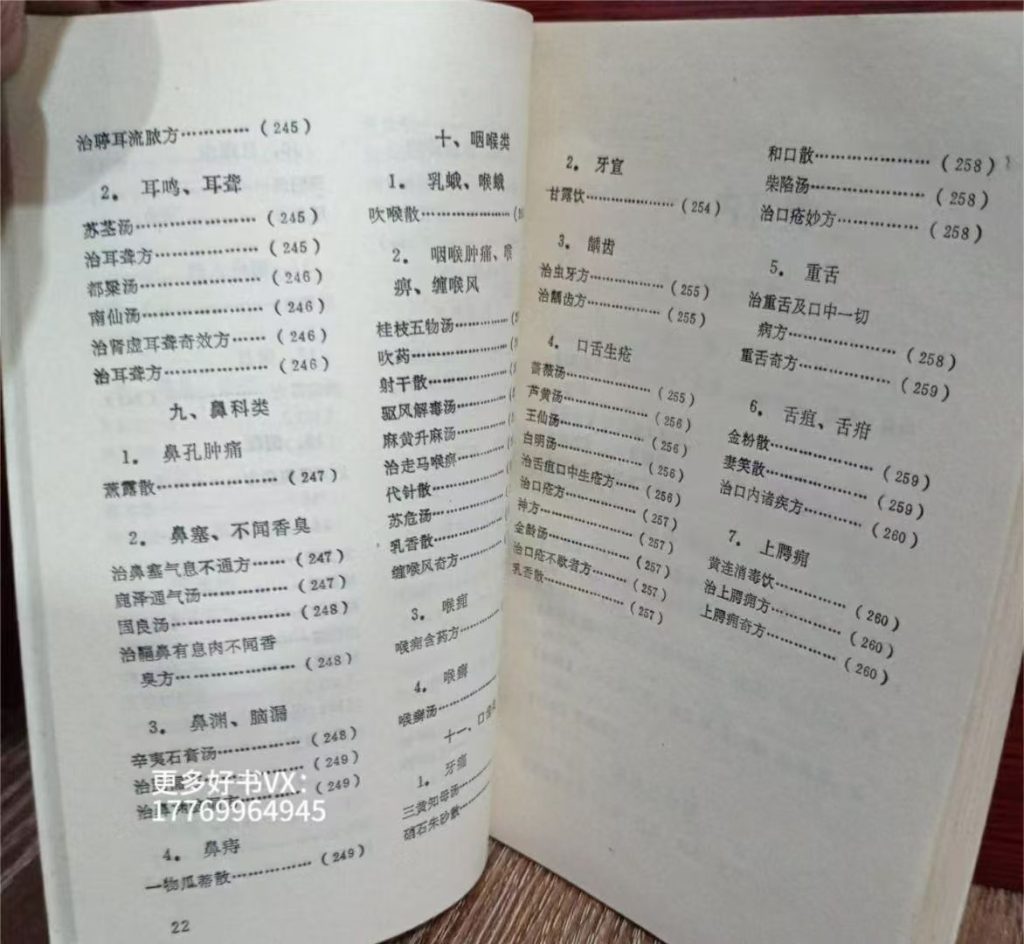 治聤耳流脓方…………（245）
2．耳鸣、耳聋
苏茎汤………………（245）
治耳聋方……………（245）
都梁汤………………（246）
南仙汤………………（246）
治肾虚耳聋奇效方……（246）
治耳聋方……………（246）
九、鼻科类
1．鼻孔肿痛
燕露散………………（247）
2．鼻塞、不闻香臭
治鼻塞气息不通方……（247）
鹿泽通气汤…………（247）
固良汤………………（248）
治齆鼻有息肉不闻香
臭方………………（248）
3．鼻渊、脑漏
辛夷石膏汤…………（248）
治 （249）
治 （249）
4．鼻痔
一物瓜蒂散…………（249）
22
十、咽喉类
1．乳蛾、喉蛾
吹喉散………………
2．咽喉肿痛、喉
痹、缠喉风
桂枝五物汤…………
吹药…………………
射干散………………
驱风解毒汤…………
麻黄升麻汤…………
治走马喉痹…………
代针散………………
苏危汤………………
乳香散………………
缠喉风奇方…………
3．喉痈
喉痈含药方…………
4．喉癣
喉癣汤………………
十一、口
1．牙痛
三黄知母汤…………
硝石朱砂散…………
2．牙宣
甘露饮………………（254）
3．龋齿
治虫牙方……………（255）
治龋齿方……………（255）
4．口舌生疮
蔷薇汤………………（255）
芦黄汤………………（256）
王仙汤………………（256）
白明汤………………（256）
治舌疽口中生疮方……（256）
治口疮方……………（257）
神方…………………（257）
金龄汤………………（257）
治口疮不歇者方………（257）
乳香散………………（257）
和口散………………（258）
柴陷汤………………（258）
治口疮妙方…………（258）
5．重舌
治重舌及口中一切
病方………………（258）
重舌奇方……………（259）
6．舌疽、舌疳
金粉散………………（259）
妻笑散………………（259）
治口内诸疾方…………（260）
7．上腭痈
黄连消毒饮…………（260）
治上腭痈方…………（260）
上腭痈奇方…………（260）
更多好书VX：
17769964945